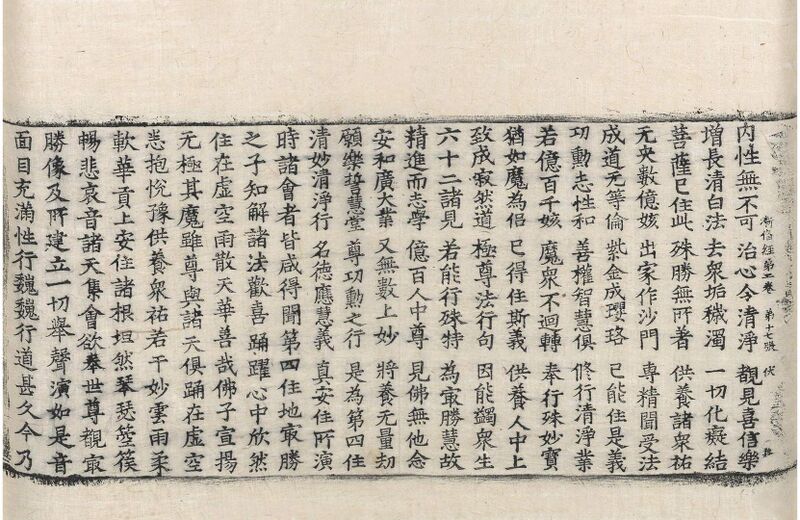 內性無不可 治心令清淨 觀見喜信樂
漸備經第二卷 第十七張 伏
增長清白法 去衆垢穢濁 一切化癡結
菩薩已住此 殊勝無所著 供養諸衆祐
无央數億姟 出家作沙門 專精聞受法
成道无等倫 紫金成瓔珞 已能住是義
功勳志性和 善權智慧俱 修行清淨業
若億百千姟 魔衆不迴轉 奉行殊妙寶
猶如魔為侶 已得住斯義 供養人中上
致成寂然道 極尊法行句 因能蠲衆生
六十二諸見 若能行殊特 為㝡勝慧故
精進而志學 億百人中尊 見佛無他念
安和廣大業 又無數上妙 將養无量劫
願樂哲慧堂 尊功勳之行 是為第四住
清妙清淨行 名德應慧義 真安住所演
時諸會者皆咸得聞第四住地㝡勝
之子知解諸法歡喜踊躍心中欣然
住在虛空雨散天華善哉佛子宣揚
无極其魔雖尊與諸天俱踊在虛空
恙抱悅豫供養衆祐若干妙雲雨柔
軟華貢上安住諸根坦然琴瑟箜篌
暢悲哀音諸天集會欲奉世尊觀㝡
勝像及所建立一切舉聲演如是音
面目充滿性行巍巍行道甚久今乃